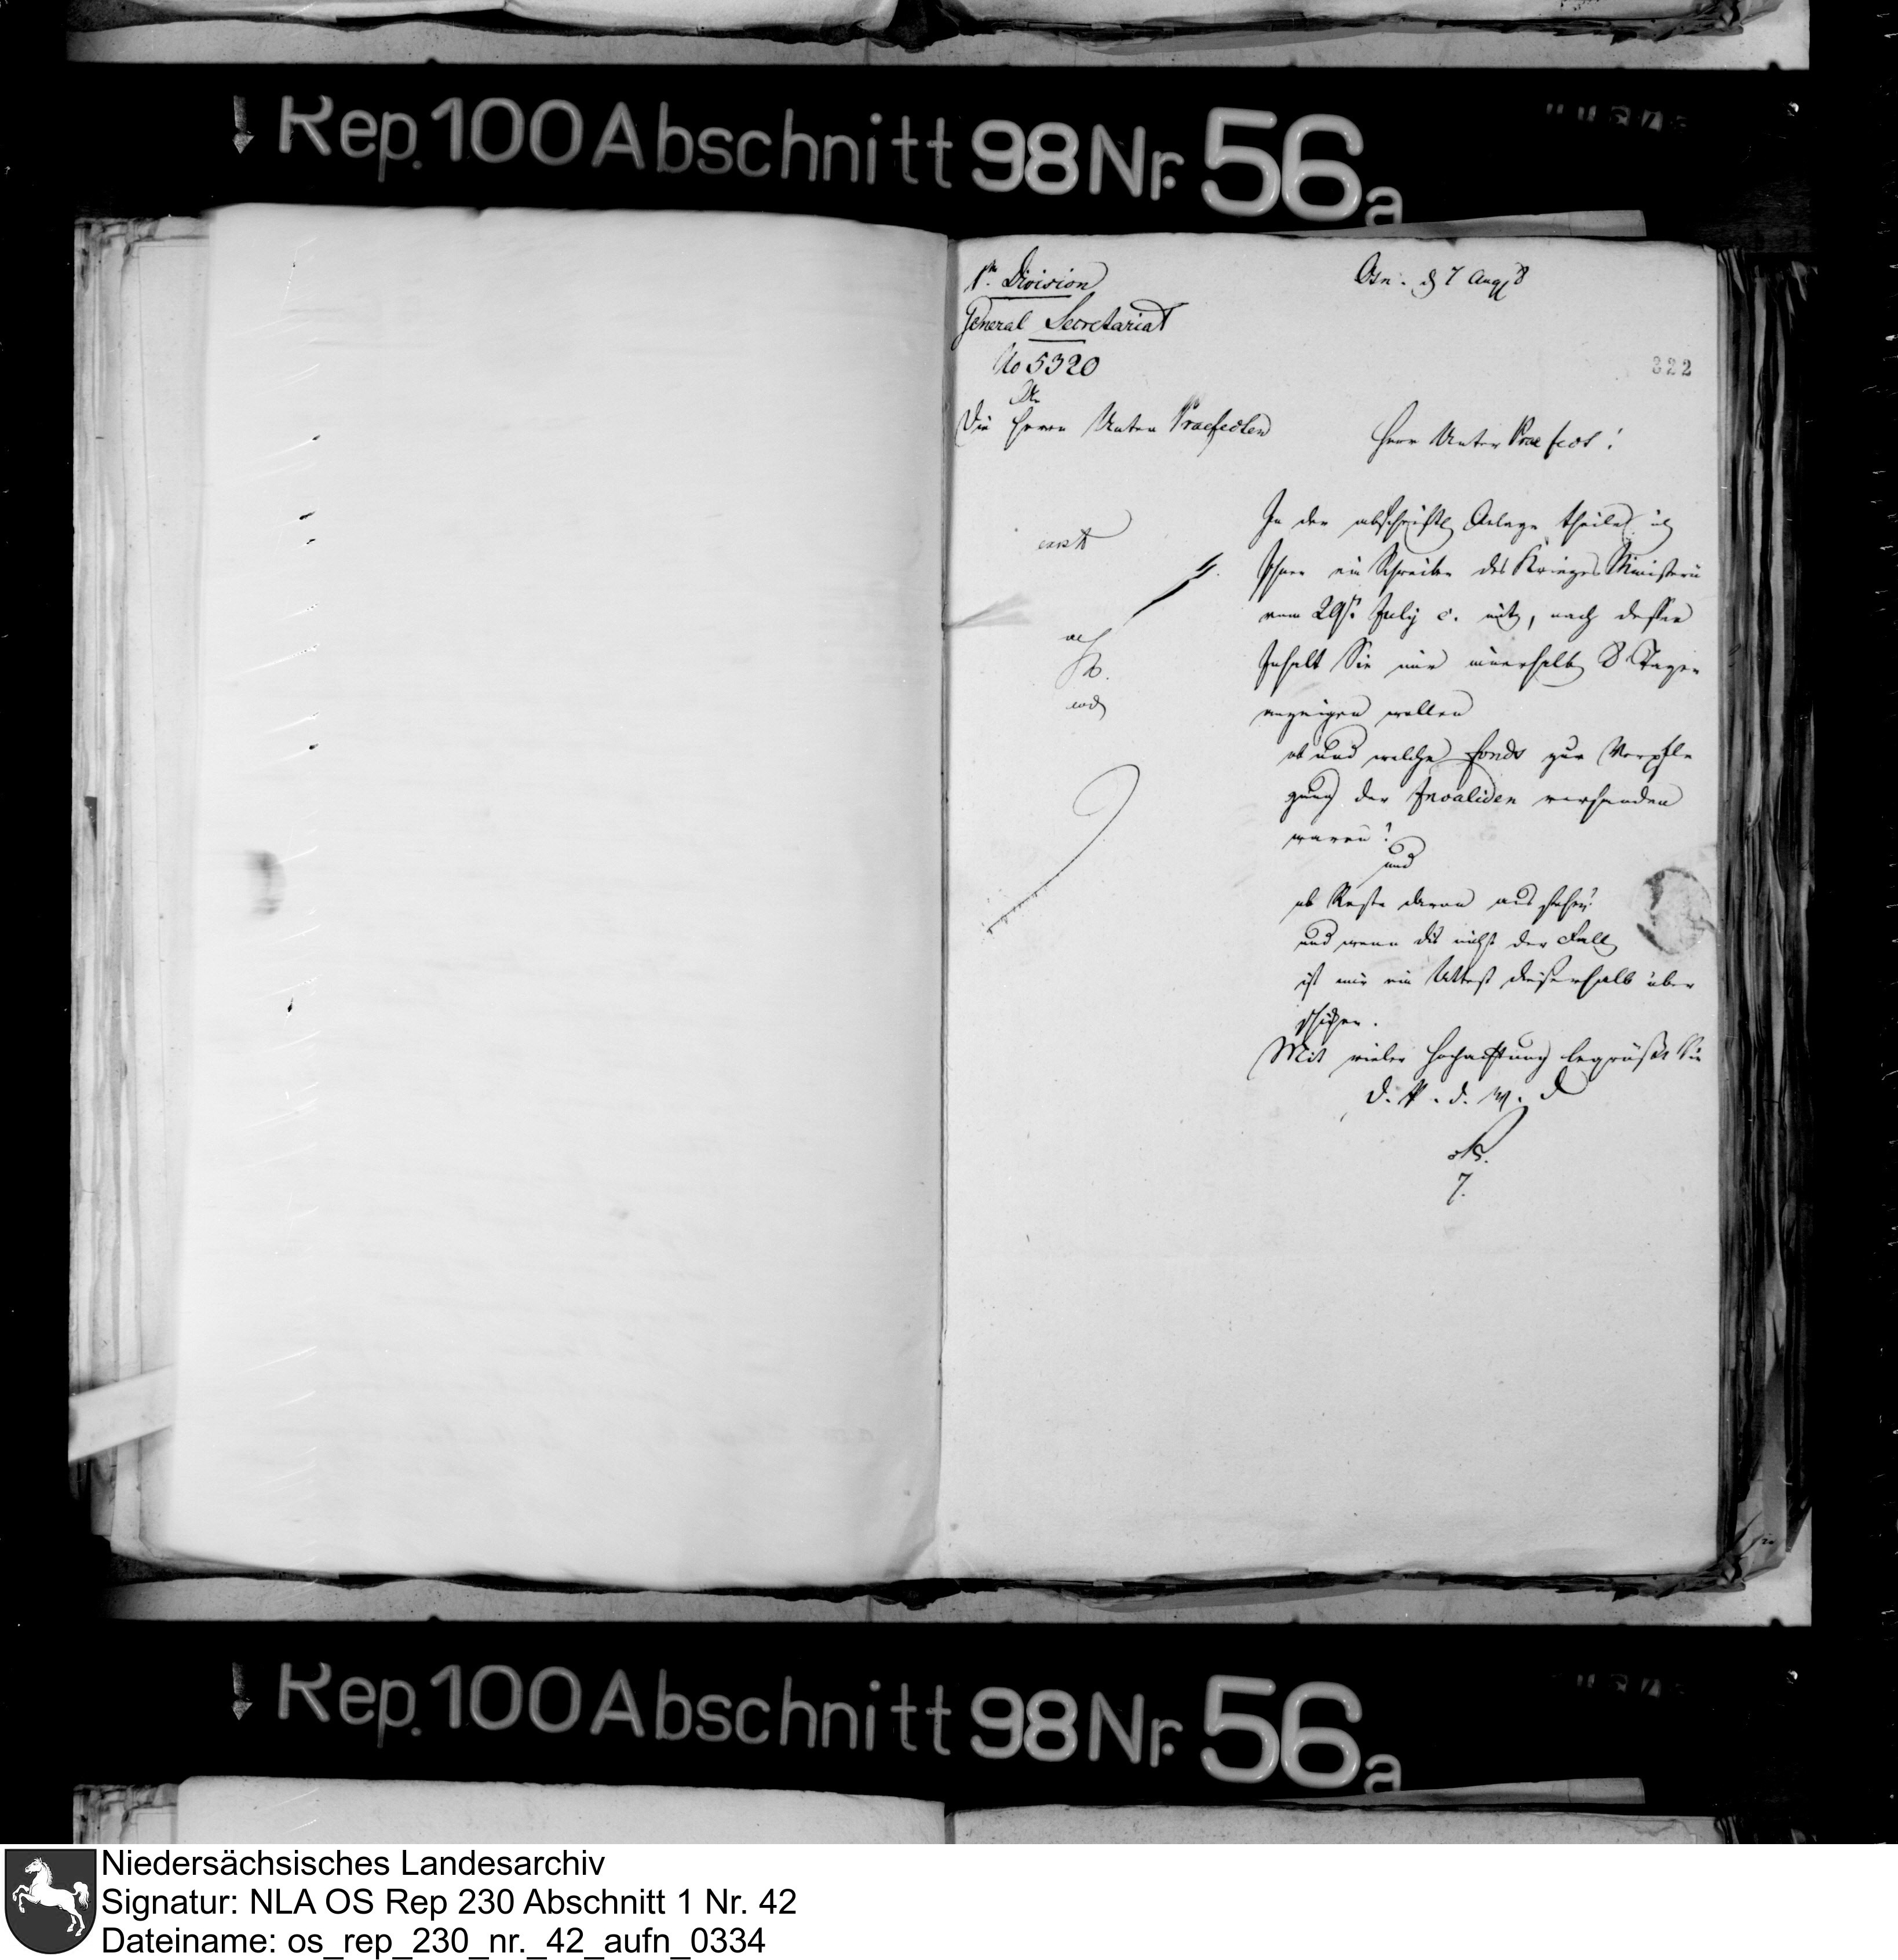 Rep. 100 Abschnitt 98 Nr. 56a
1te Division
General Secretariat
No 5320
Die Herrn Unter Praefecten
Osn. d 7 Aug 8
322
Herr Unter Praefect!
In der abschriftl Anlage theile ich
Ihnen ein Schreiben des Krieges Ministerii
vom 29st. July c. mit, nach dessen
Inhalt Sie mir innerhalb 8 Tagen
anzeigen wollen
ob und welche Fonds zur Verpfle
gung der Invaliden vorhanden
waren?
und
ob Reste davon ausstehen?
und wenn dis nicht der Fall
ist mir ein Attest dieserhalb über
schicken.
Mit vieler Hochachtung begrüßt Sie
d. P. d. W. D
7.
Rep. 100 Abschnitt 98 Nr. 56a
Niedersächsisches Landesarchiv
Signatur: NLA OS Rep 230 Abschnitt 1 Nr. 42
Dateiname: os_rep_230_nr._42_aufn_0334